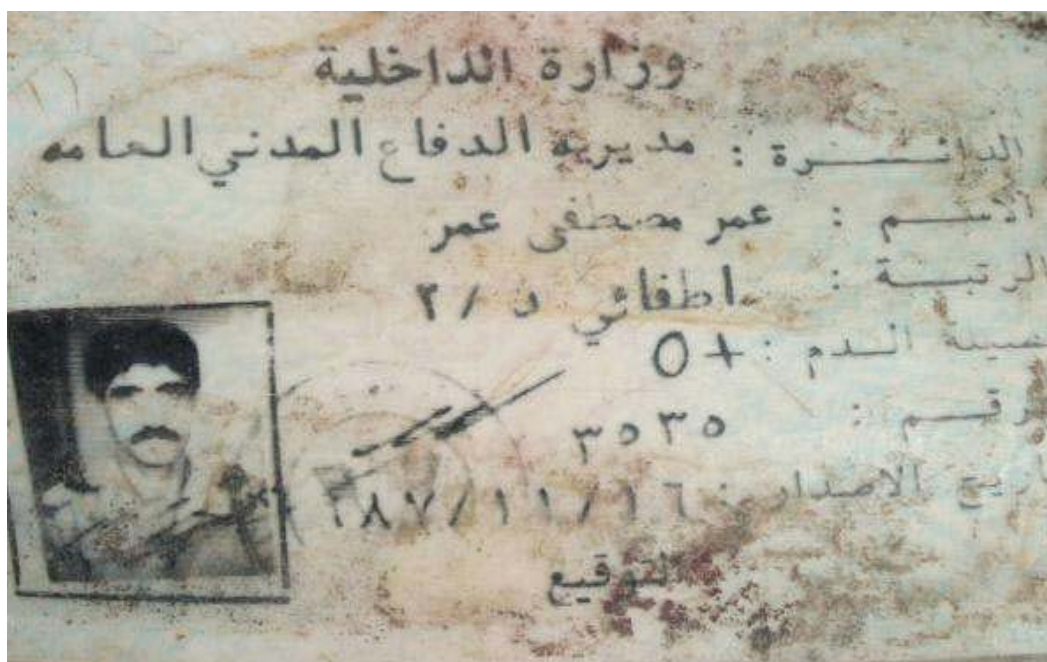 وزارة الداخلية
الدائـــــرة : مديرية الدفاع المدني العامه
الاســـم : عمر مصطفى عمر
الرتبـــة : اطفائي د / ٢
الـــدم : O+
رقـــم : ٣٥٣٥
تاريخ الاصدار : ١٦/١١/٩٨٧
التوقيع